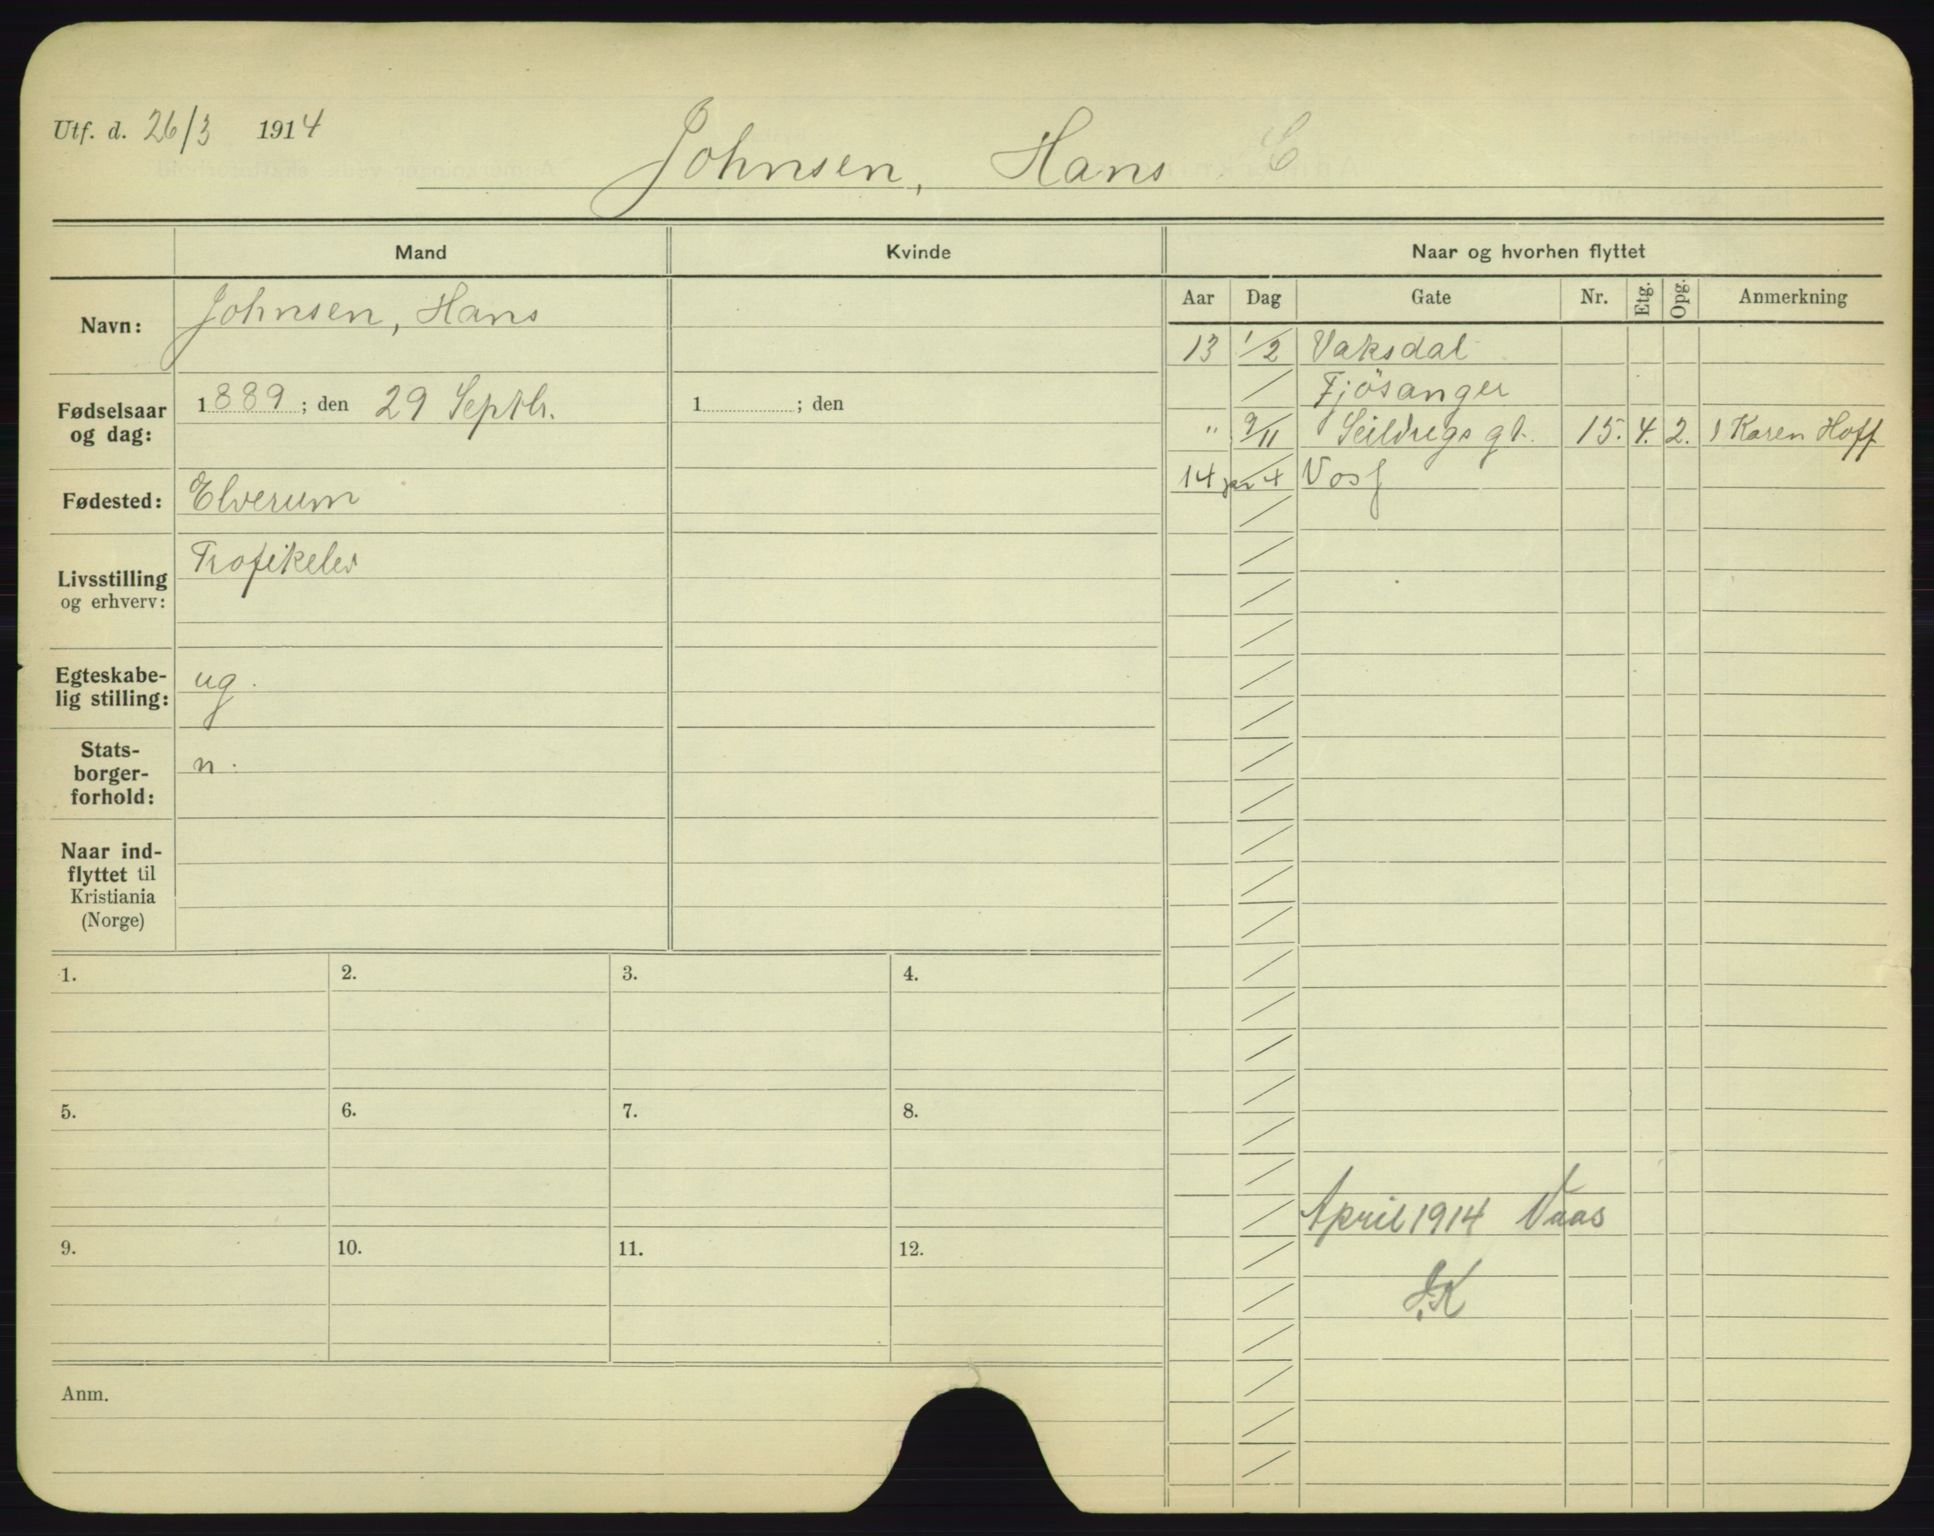 Utf. d. 26/3 1914
Johnsen, Hans C
Mand
Kvinde
Naar og hvorhen flyttet
Aar Dag Gate Nr. Etg. Opg. Anmerkning
Navn: Johnsen, Hans
Fødselsaar og dag: 1889; den 29 Septbr.
1 ; den
Fødested: Elverum
Livsstilling og erhverv: Trafikelev
Egteskabe-
lig stilling: ug.
Stats-
borger-
forhold: n.
Naar ind-
flyttet til
Kristiania
(Norge)
13 1/2 Vaksdal
Fjösanger
" 9/11 Seildugs gt. 15. 4. 2. Karen Hoff
14 4 Voss
April 1914 Vaas
1. 2. 3. 4.
5. 6. 7. 8.
9. 10. 11. 12.
Anm.